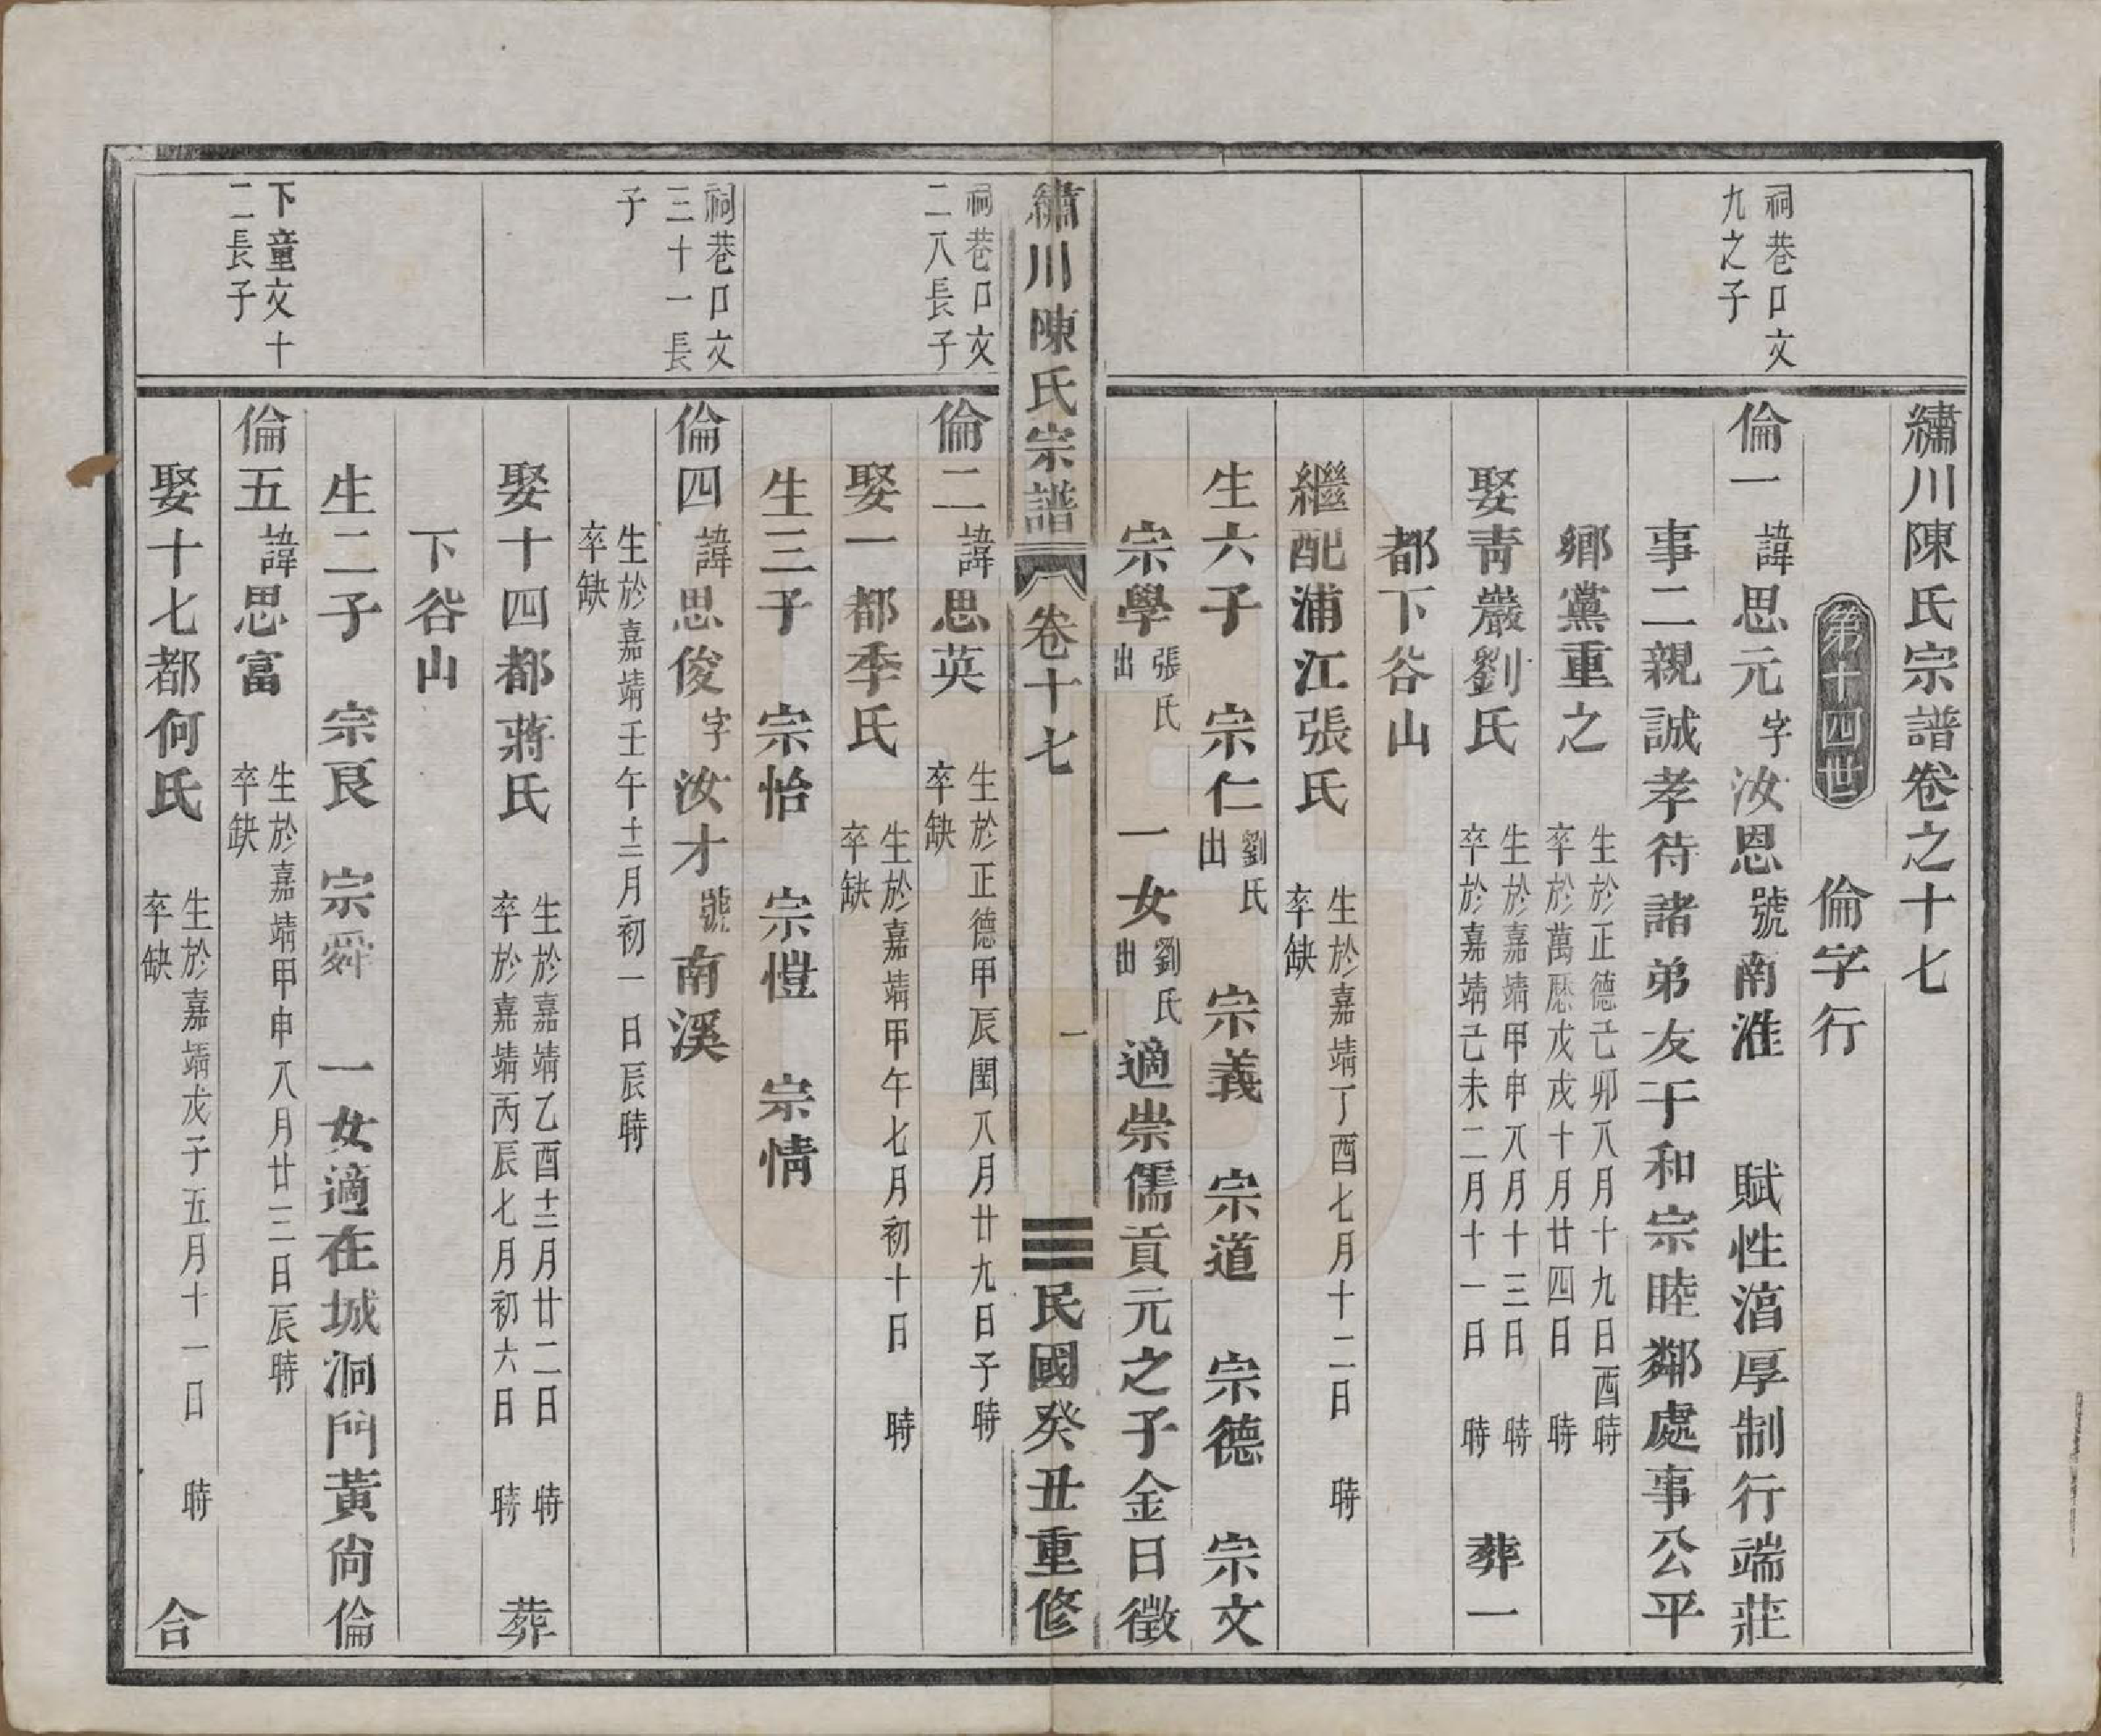 繡川陳氏宗譜卷之十七
第十四世　倫字行
祠巷口文
九之子
倫一諱思元字汝恩號南淮　賦性湻厚制行端莊
事二親誠孝待諸弟友于和宗睦鄰處事公平
鄉黨重之
生於正德己卯八月十九日酉時
卒於萬厯戊戌十月廿四日　時
娶青巖劉氏
生於嘉靖甲申八月十三日　時
卒於嘉靖己未二月十一日　時
葬一
都下谷山
繼配浦江張氏
生於嘉靖丁酉七月十二日　時
卒缺
生六子　宗仁劉氏出　宗義　宗道　宗德　宗文
宗學張氏出　一女劉氏出適崇儒貢元之子金日徵
繡川陳氏宗譜　卷十七　一　民國癸丑重修
祠巷口文
二八長子
倫二諱思英
生於正德甲辰閏八月廿九日子時
卒缺
娶一都季氏
生於嘉靖甲午七月初十日　時
卒缺
生三子　宗怡　宗愷　宗情
祠巷口文
三十一長
子
倫四諱思俊字汝才號南溪
生於嘉靖壬午十二月初一日辰時
卒缺
娶十四都蔣氏
生於嘉靖乙酉十二月廿二日　時
卒於嘉靖丙辰七月初六日　時
葬
下谷山
生二子　宗良　宗舜　一女適在城洞門黃尙倫
下童文十
二長子
倫五諱思富
生於嘉靖甲申八月廿三日辰時
卒缺
娶十七都何氏
生於嘉靖戊子五月十一日　時
卒缺
合